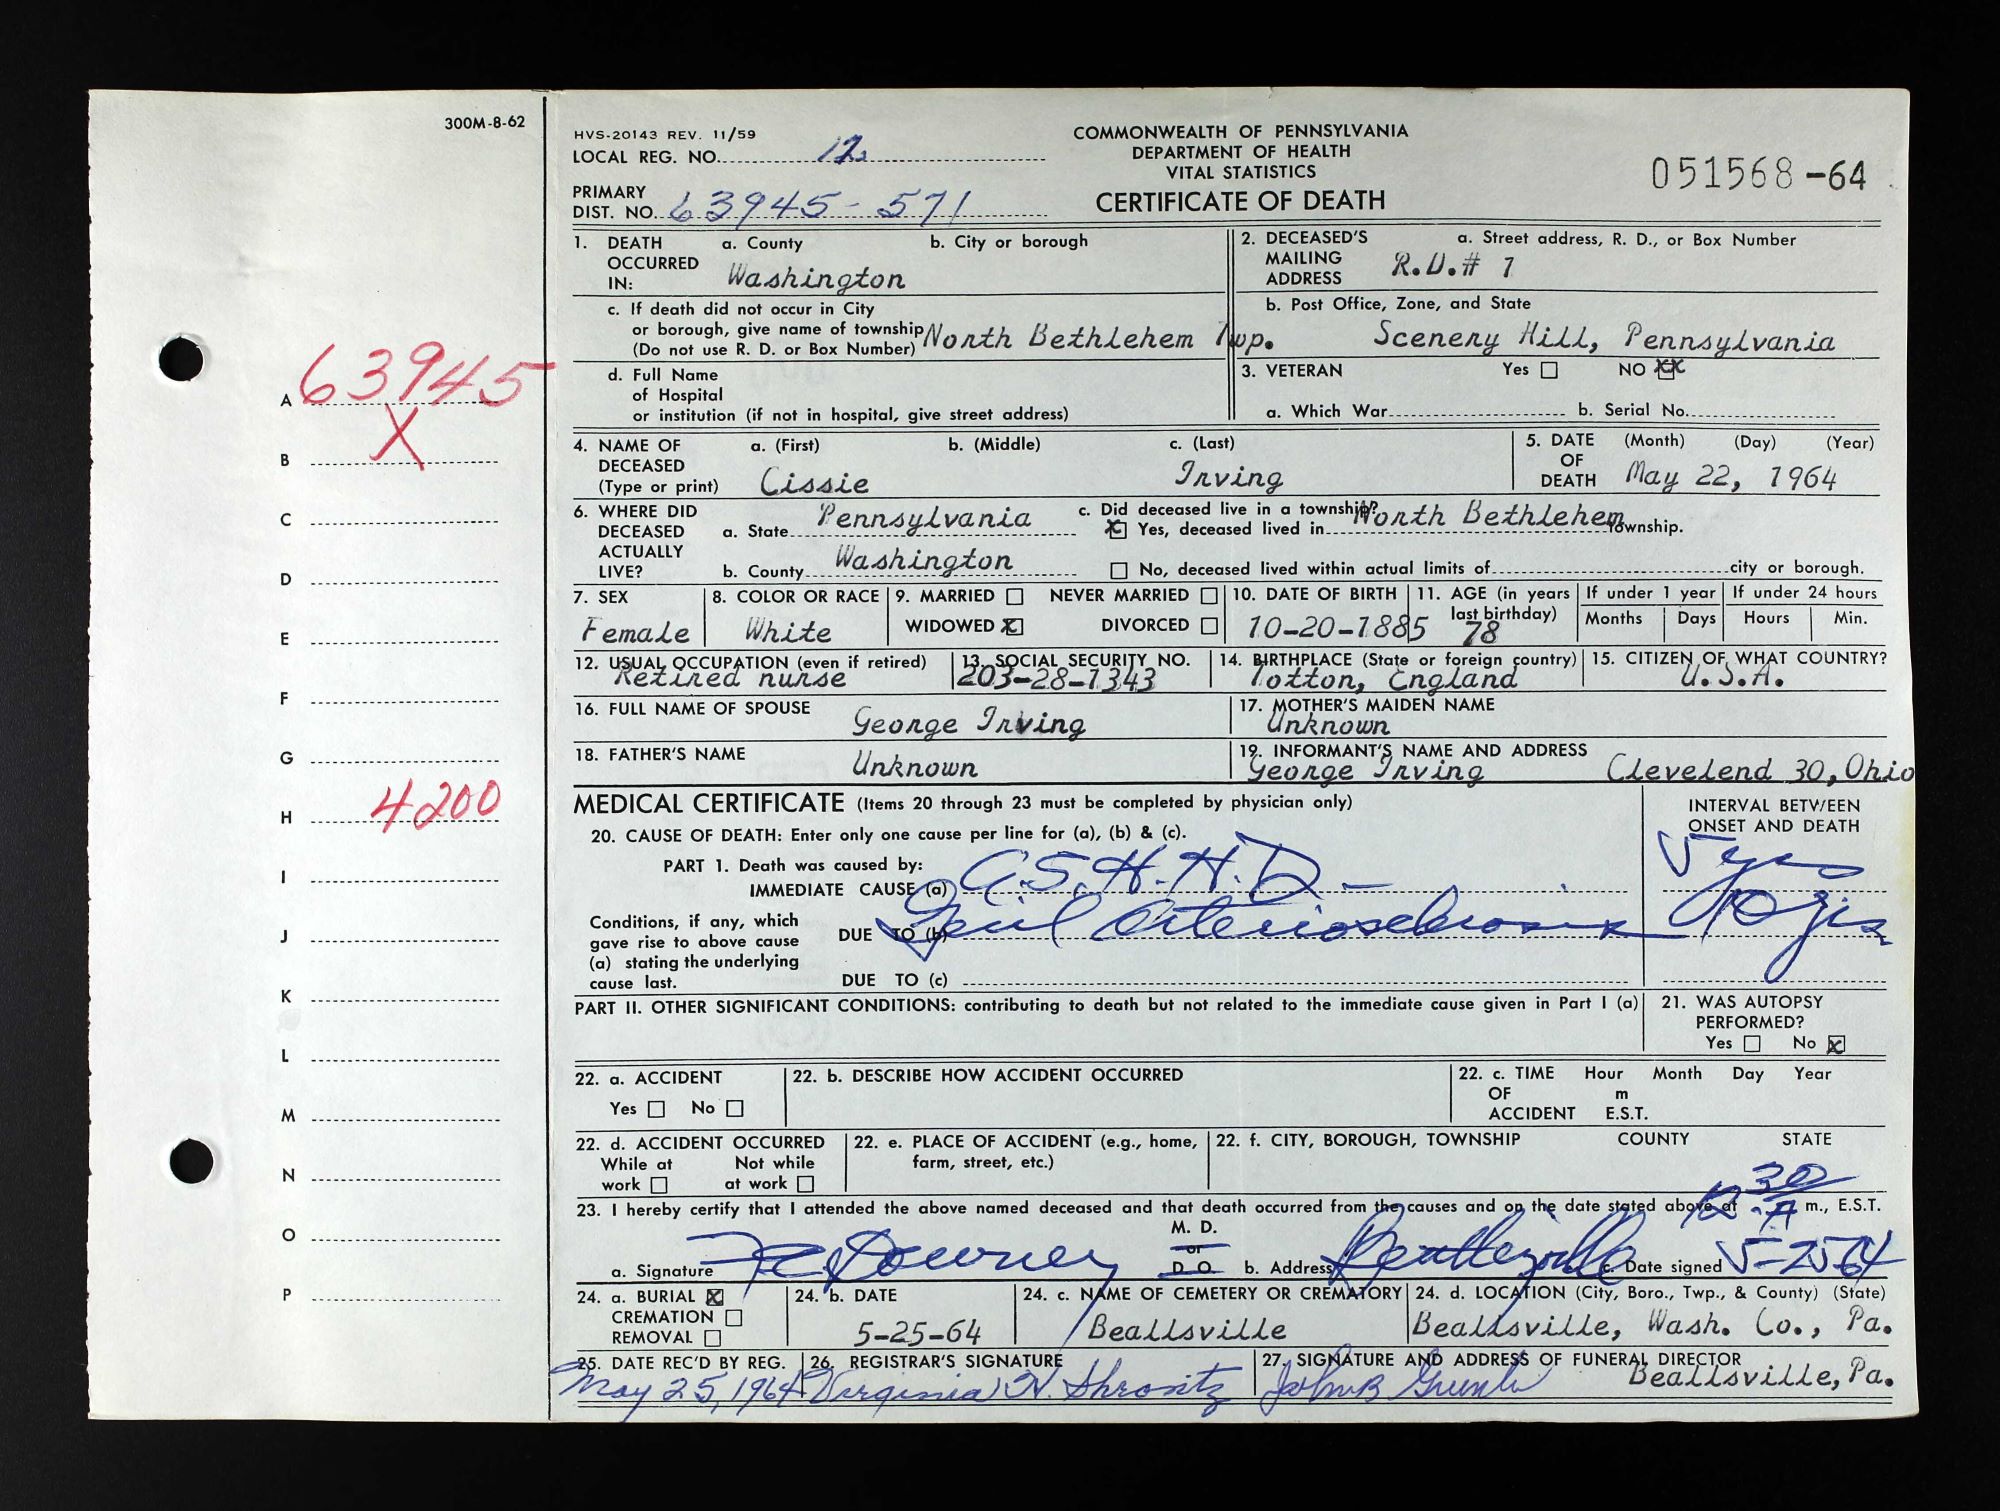 300M-8-62
HVS-20143 REV. 11/59
LOCAL REG. NO. 12
COMMONWEALTH OF PENNSYLVANIA
DEPARTMENT OF HEALTH
VITAL STATISTICS
CERTIFICATE OF DEATH
051568-64
PRIMARY
DIST. NO. 63945-571
1. DEATH OCCURRED IN: a. County Washington b. City or borough
c. If death did not occur in City
or borough, give name of township North Bethlehem Twp.
(Do not use R. D. or Box Number)
d. Full Name
of Hospital
or institution (if not in hospital, give street address)
2. DECEASED'S MAILING ADDRESS a. Street address, R. D., or Box Number
R.D.# 1
b. Post Office, Zone, and State
Scenery Hill, Pennsylvania
3. VETERAN Yes NO XX
a. Which War b. Serial No.
4. NAME OF DECEASED (Type or print) a. (First) b. (Middle) c. (Last)
Cissie Irving
5. DATE OF DEATH (Month) (Day) (Year)
May 22, 1964
6. WHERE DID DECEASED ACTUALLY LIVE?
a. State Pennsylvania
b. County Washington
c. Did deceased live in a township?
X Yes, deceased lived in North Bethlehem Township.
No, deceased lived within actual limits of city or borough.
7. SEX Female
8. COLOR OR RACE White
9. MARRIED NEVER MARRIED
WIDOWED X DIVORCED
10. DATE OF BIRTH 10-20-1885
11. AGE (in years last birthday) 78
If under 1 year Months Days
If under 24 hours Hours Min.
12. USUAL OCCUPATION (even if retired) Retired nurse
13. SOCIAL SECURITY NO. 203-28-1343
14. BIRTHPLACE (State or foreign country) Totton, England
15. CITIZEN OF WHAT COUNTRY? U.S.A.
16. FULL NAME OF SPOUSE George Irving
17. MOTHER'S MAIDEN NAME Unknown
18. FATHER'S NAME Unknown
19. INFORMANT'S NAME AND ADDRESS
George Irving Clevelend 30, Ohio
MEDICAL CERTIFICATE (Items 20 through 23 must be completed by physician only)
INTERVAL BETWEEN
ONSET AND DEATH
20. CAUSE OF DEATH: Enter only one cause per line for (a), (b) & (c).
PART 1. Death was caused by:
IMMEDIATE CAUSE (a) A.S.H.H.D. - 5 yrs
Conditions, if any, which
gave rise to above cause
(a) stating the underlying
cause last.
DUE TO (b) Gen'l Arteriosclerosis 10 yrs
DUE TO (c)
PART II. OTHER SIGNIFICANT CONDITIONS: contributing to death but not related to the immediate cause given in Part I (a)
21. WAS AUTOPSY
PERFORMED?
Yes No X
22. a. ACCIDENT
Yes No
22. b. DESCRIBE HOW ACCIDENT OCCURRED
22. c. TIME OF ACCIDENT Hour Month Day Year
m
E.S.T.
22. d. ACCIDENT OCCURRED
While at work Not while at work
22. e. PLACE OF ACCIDENT (e.g., home,
farm, street, etc.)
22. f. CITY, BOROUGH, TOWNSHIP COUNTY STATE
23. I hereby certify that I attended the above named deceased and that death occurred from the causes and on the date stated above at 12 30 A m., E.S.T.
a. Signature Downey M. D. or D. O. b. Address Bentleyville c. Date signed 5-25-64
24. a. BURIAL X
CREMATION
REMOVAL
24. b. DATE
5-25-64
24. c. NAME OF CEMETERY OR CREMATORY
Beallsville
24. d. LOCATION (City, Boro., Twp., & County) (State)
Beallsville, Wash. Co., Pa.
25. DATE REC'D BY REG.
May 25, 1964
26. REGISTRAR'S SIGNATURE
Virginia
27. SIGNATURE AND ADDRESS OF FUNERAL DIRECTOR
John B Beallsville, Pa.
A 63945
B X
C
D
E
F
G
H 4200
I
J
K
L
M
N
O
P